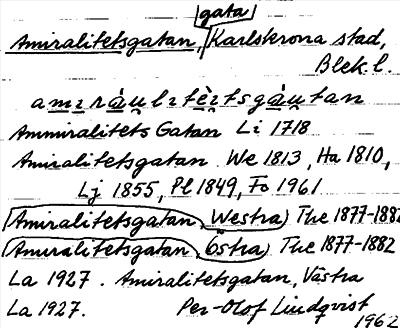 gata
Amiralitetsgatan, Karlskrona stad,
Blek. l.
amɪràu̯lɪtètsgàu̯tan
Ammiralitets Gatan Li 1718
Amiralitetsgatan We 1813, Ha 1810,
Lj 1855, Pl 1849, Fo 1961
Amiralitetsgatan, Westra) The 1877-1882
Amiralitetsgatan, Östra) The 1877-1882
La 1927. Amiralitetsgatan, Västra
La 1927. Per-Olof Lindqvist
1962